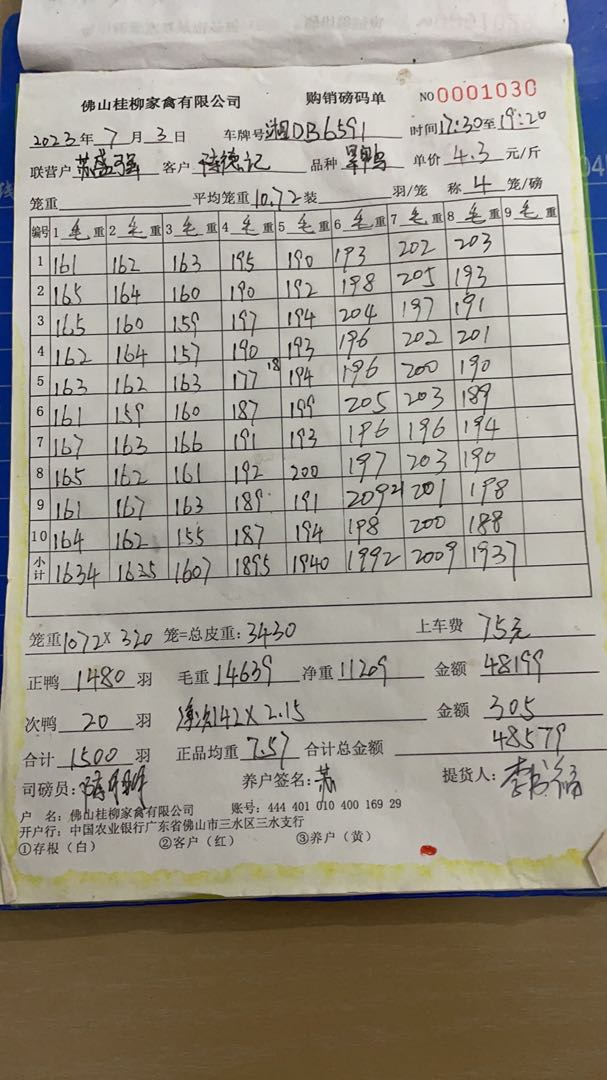 佛山桂柳家禽有限公司 购销磅码单 NO 0001030
2023年7月3日 车牌号 湘DB6591 时间17:30至19:20
联营户 苏盛强 客户 陈德记 品种 单价 4.3 元/斤
笼重 平均笼重 10.72 装 羽/笼 称 4 笼/磅
编号 1 毛 重 2 毛 重 3 毛 重 4 毛 重 5 毛 重 6 毛 重 7 毛 重 8 毛 重 9 毛 重
1 161 162 163 195 190 193 202 203
2 165 164 160 190 192 198 205 193
3 165 160 159 197 194 204 197 191
4 162 164 157 190 193 196 202 201
5 163 162 163 177 18 194 196 200 190
6 161 159 160 187 199 205 203 189
7 167 163 166 191 193 196 196 194
8 165 162 161 192 200 197 203 190
9 161 167 163 189 191 209 201 198
10 164 162 155 187 194 198 200 188
小计 1634 1625 1607 1895 1940 1992 2009 1937
笼重 1072 × 320 笼=总皮重: 3430 上车费 75元
正鸭 1480 羽 毛重 14639 净重 11209 金额 48199
次鸭 20 羽 净次142×2.15 金额 305
合计 1500 羽 正品均重 7.57 合计总金额 48579
司磅员: 养户签名: 苏 提货人:
户 名: 佛山桂柳家禽有限公司 账号: 444 401 010 400 169 29
开户行: 中国农业银行广东省佛山市三水区三水支行
①存根（白） ②客户（红） ③养户（黄）